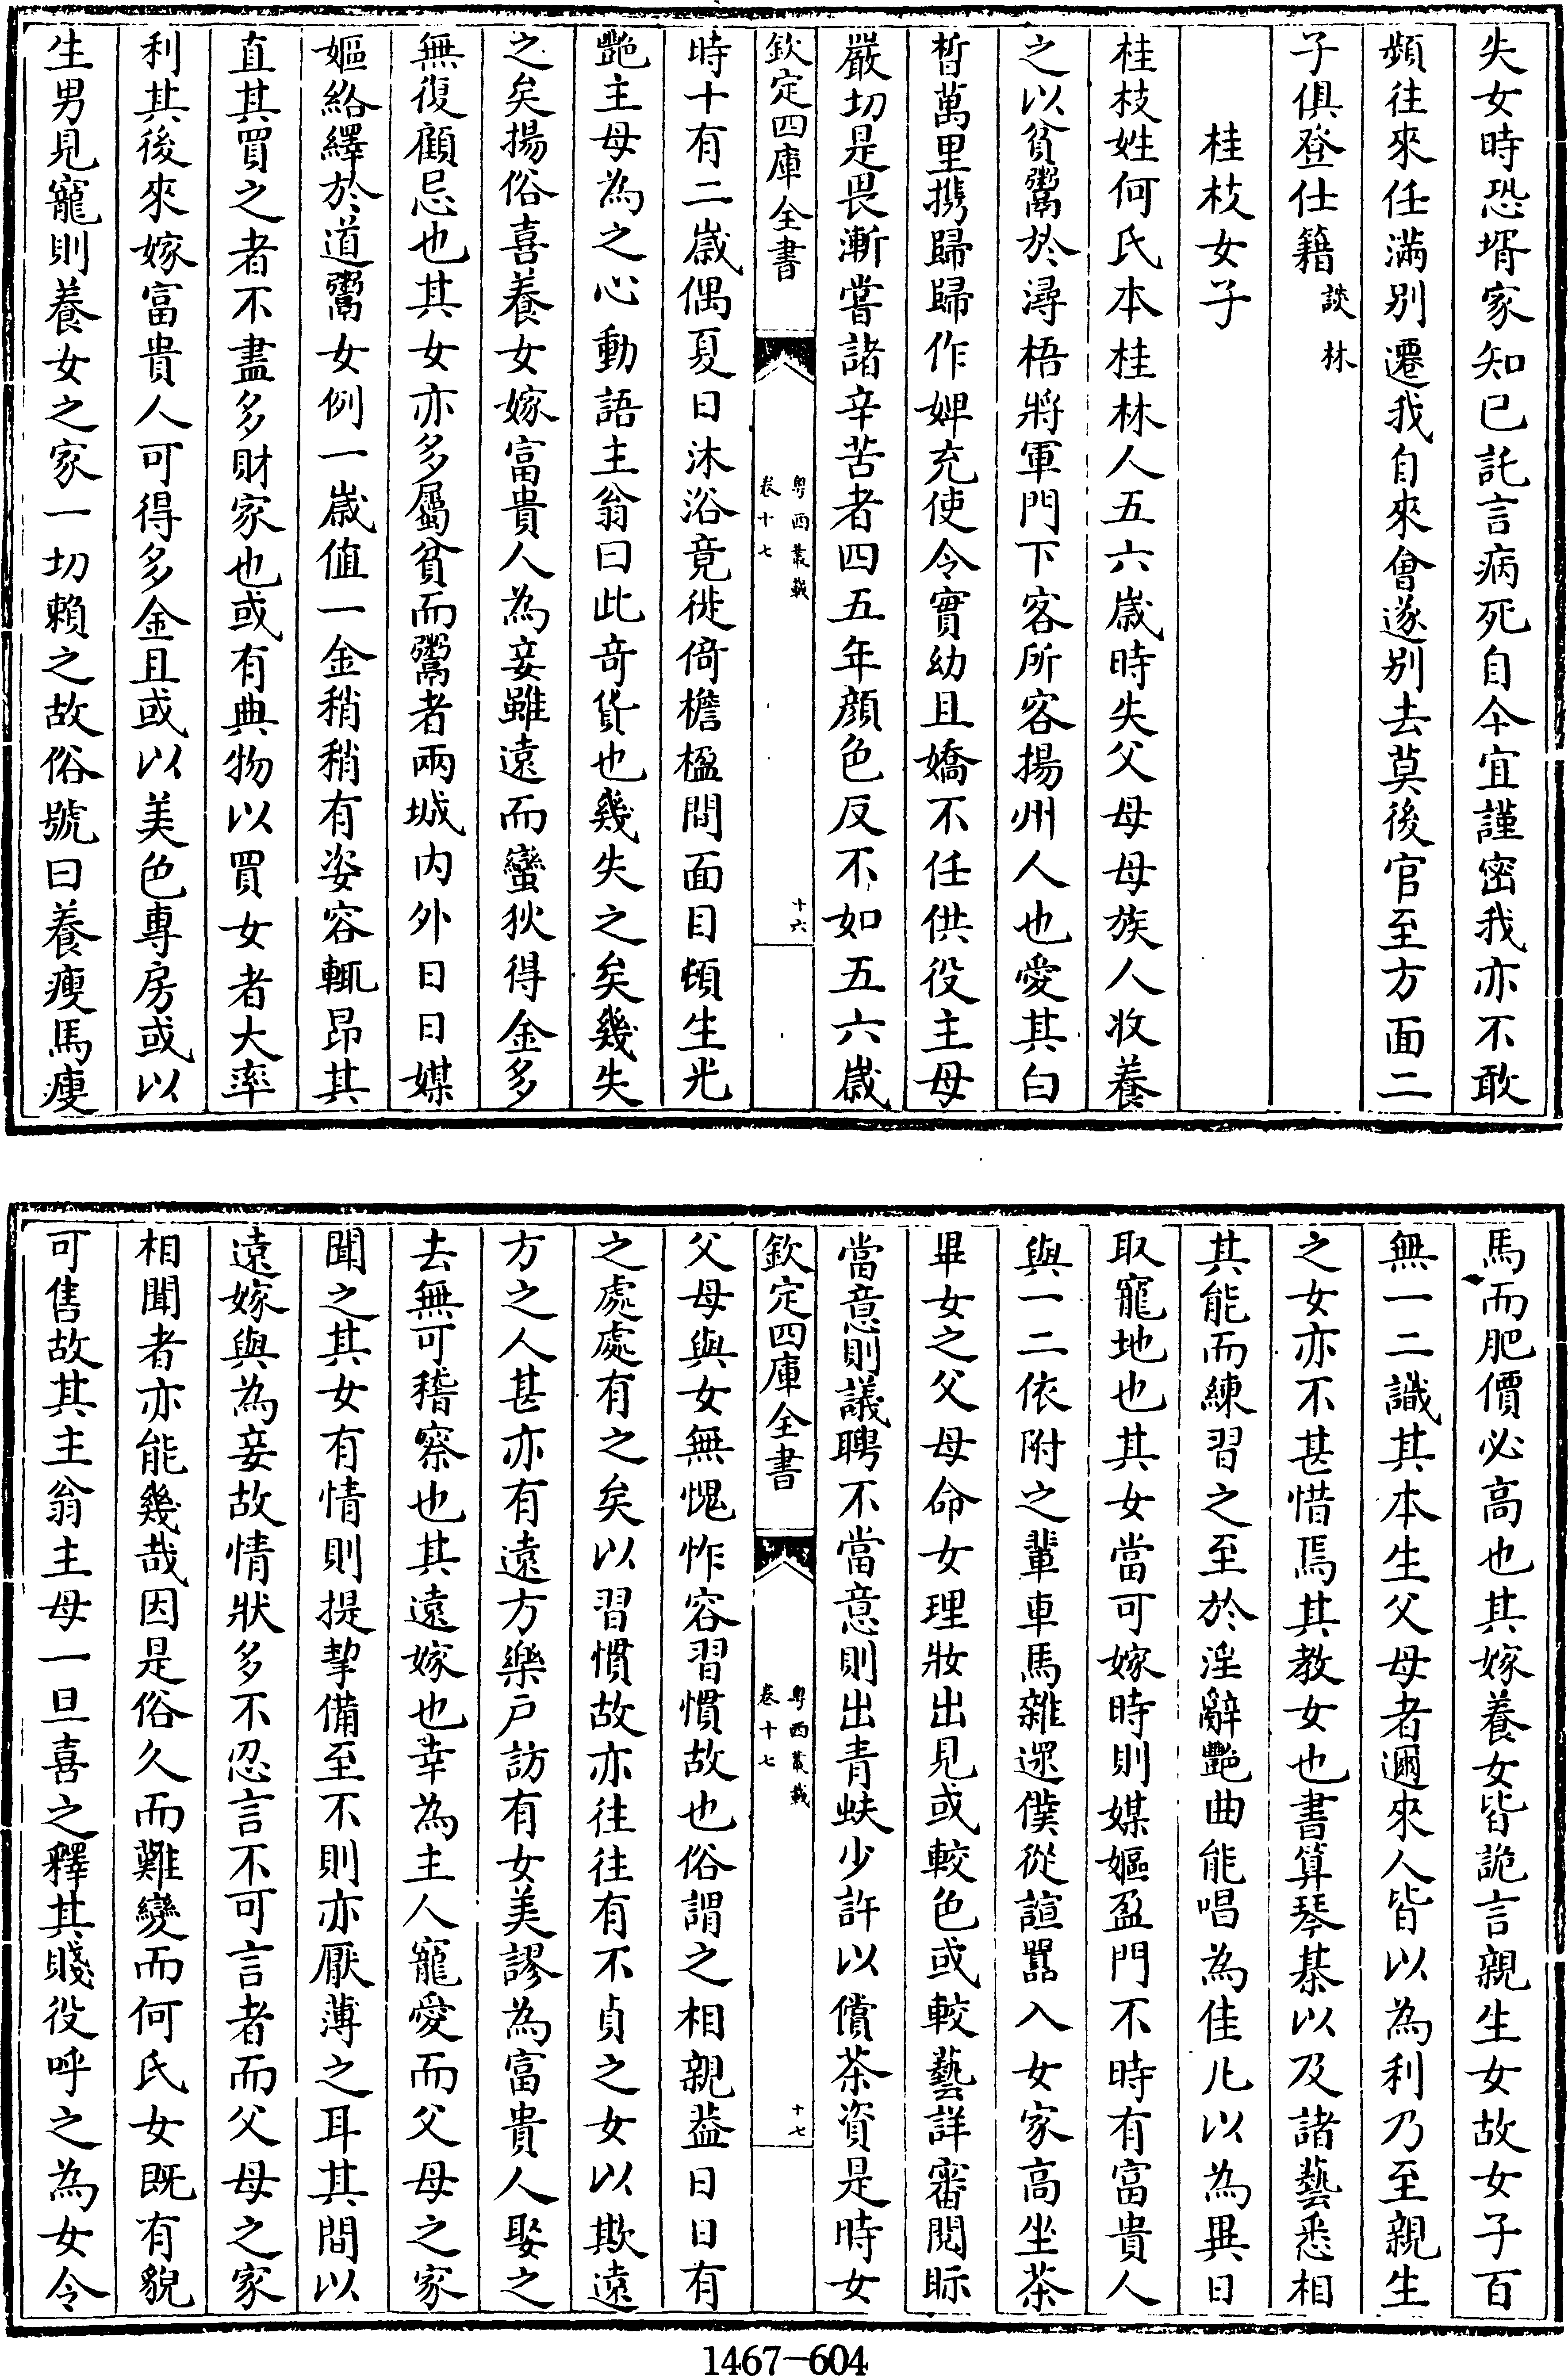 失女時恐壻家知已託言病死自今宜謹密我亦不敢
頻往來任滿別遷我自來會遂別去莫後官至方面二
子俱登仕籍談林
桂枝女子
桂枝姓何氏本桂林人五六歲時失父母母族人收養
之以貧鬻於潯梧將軍門下客所客揚州人也愛其白
晳萬里携歸歸作婢充使令實幼且嬌不任供役主母
嚴切是畏漸嘗諸辛苦者四五年顏色反不如五六歲
欽定四庫全書
粤西叢載
卷十七
十六
時十有二歲偶夏日沐浴竟徙倚檐楹間面目頓生光
艷主母為之心動語主翁曰此竒貨也幾失之矣幾失
之矣揚俗喜養女嫁富貴人為妾雖遠而蠻狄得金多
無復顧忌也其女亦多屬貧而鬻者兩城内外日日媒
嫗絡繹於道鬻女例一歲值一金稍稍有姿容輒昂其
直其買之者不盡多財家也或有典物以買女者大率
利其後來嫁富貴人可得多金且或以美色專房或以
生男見寵則養女之家一切賴之故俗號曰養瘦馬瘦
馬而肥價必高也其嫁養女皆詭言親生女故女子百
無一二識其本生父母者邇來人皆以為利乃至親生
之女亦不甚惜焉其教女也書算琴棊以及諸藝悉相
其能而練習之至於淫辭艷曲能唱為佳凡以為異日
取寵地也其女當可嫁時則媒嫗盈門不時有富貴人
與一二依附之輩車馬雜遝僕從諠囂入女家高坐茶
畢女之父母命女理妝出見或較色或較藝詳審閱眎
當意則議聘不當意則出青蚨少許以償茶資是時女
欽定四庫全書
粤西叢載
卷十七
十七
父母與女無愧怍容習慣故也俗謂之相親葢日日有
之處處有之矣以習慣故亦往往有不貞之女以欺遠
方之人甚亦有遠方樂户訪有女美謬為富貴人娶之
去無可稽察也其遠嫁也幸為主人寵愛而父母之家
聞之其女有情則提挈備至不則亦厭薄之耳其間以
遠嫁與為妾故情狀多不忍言不可言者而父母之家
相聞者亦能幾哉因是俗久而難變而何氏女既有貌
可售故其主翁主母一旦喜之釋其賤役呼之為女令
1467-604